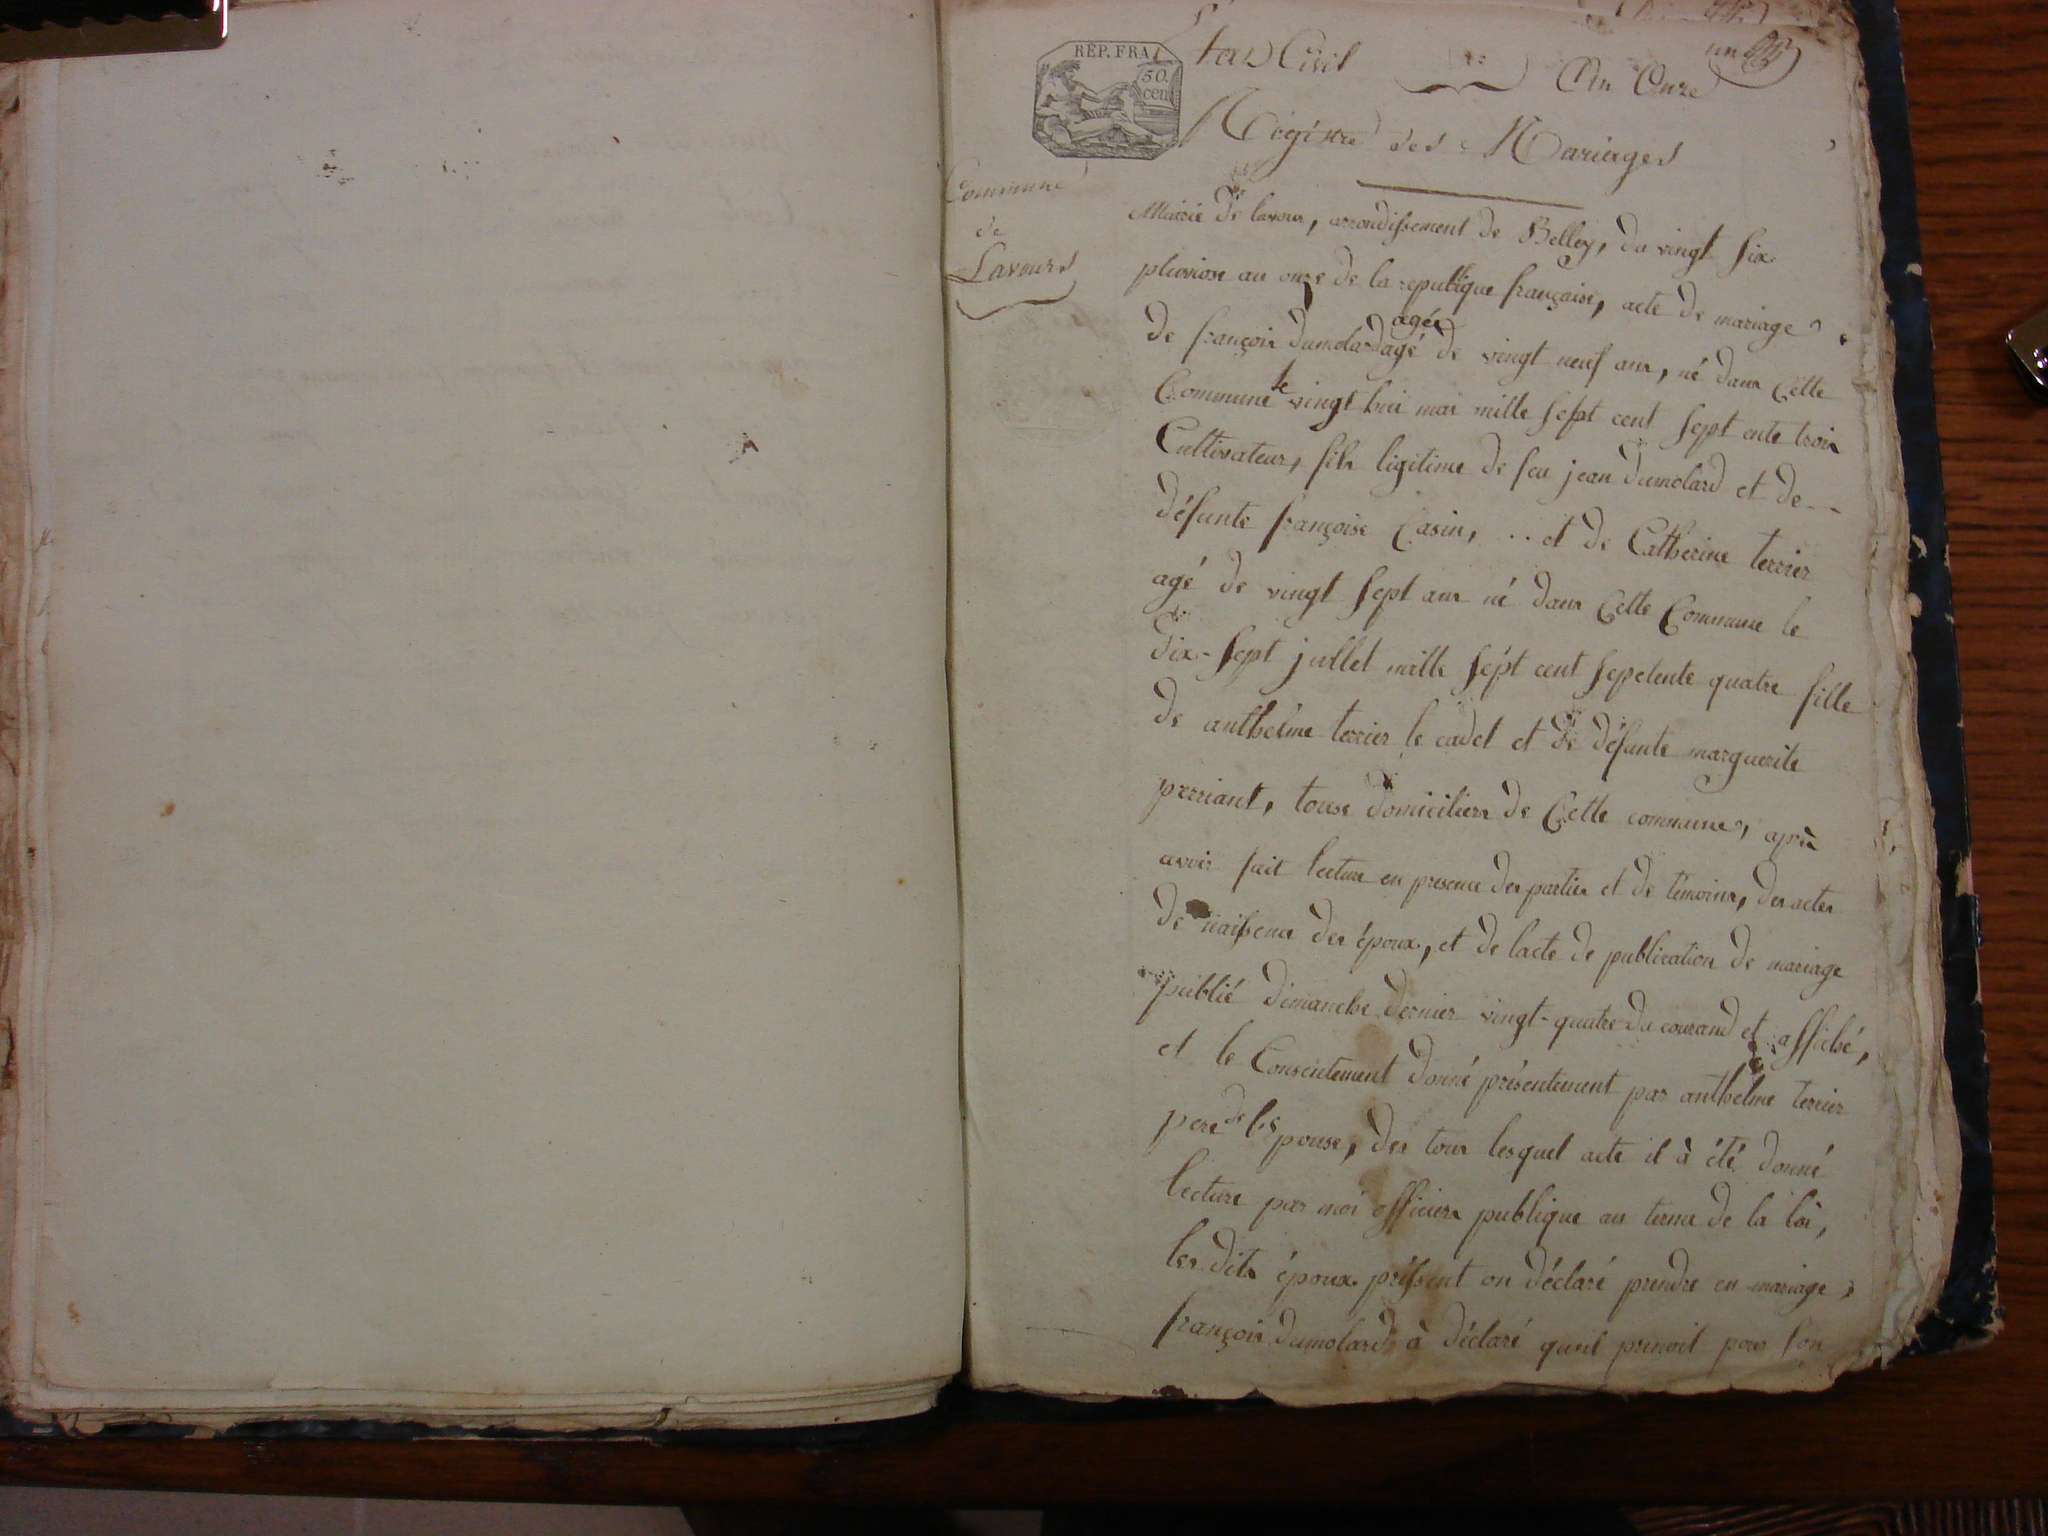 RÉP. FRA
50.
cen
Etat Civil An Onze
un
Régistre des Mariages
Commune
de
Lavours
Mairie de lavour, arrondissement de Belley, du vingt six
pluviose an onze de la republique française, acte de mariage
de françois dumolard agé agée de vingt neuf ans, né dans Cette
Commune le vingt hui mai mille sept cent sept ente trois
Cultivateur, fils ligitime de feu jean dumolard et de
défunte françoise Casin, .. et de Catherine terrier
agé de vingt sept ans né dans Cette Commune le
dix-sept jullet mille sept cent sepetente quatre fille
de anthelme terrier le cadet et de défunte marguerite
perriant, touse domiciliers de Cette commune, après
avoir fait lecture en presence des parties et de témoins, des actes
de naissence des époux, et de lacte de publication de mariage
publié dimanche dernier vingt-quatre du courand et affiché,
et le Consentement donné présentement par anthelme terrier
pere de les pouse, des tous lesquel acte il à été donné
lecture par moi officiers publique au terme de la loi,
les dits époux présent on déclaré prendre en mariage,
françois dumolard à déclaré quil prenoit pour son